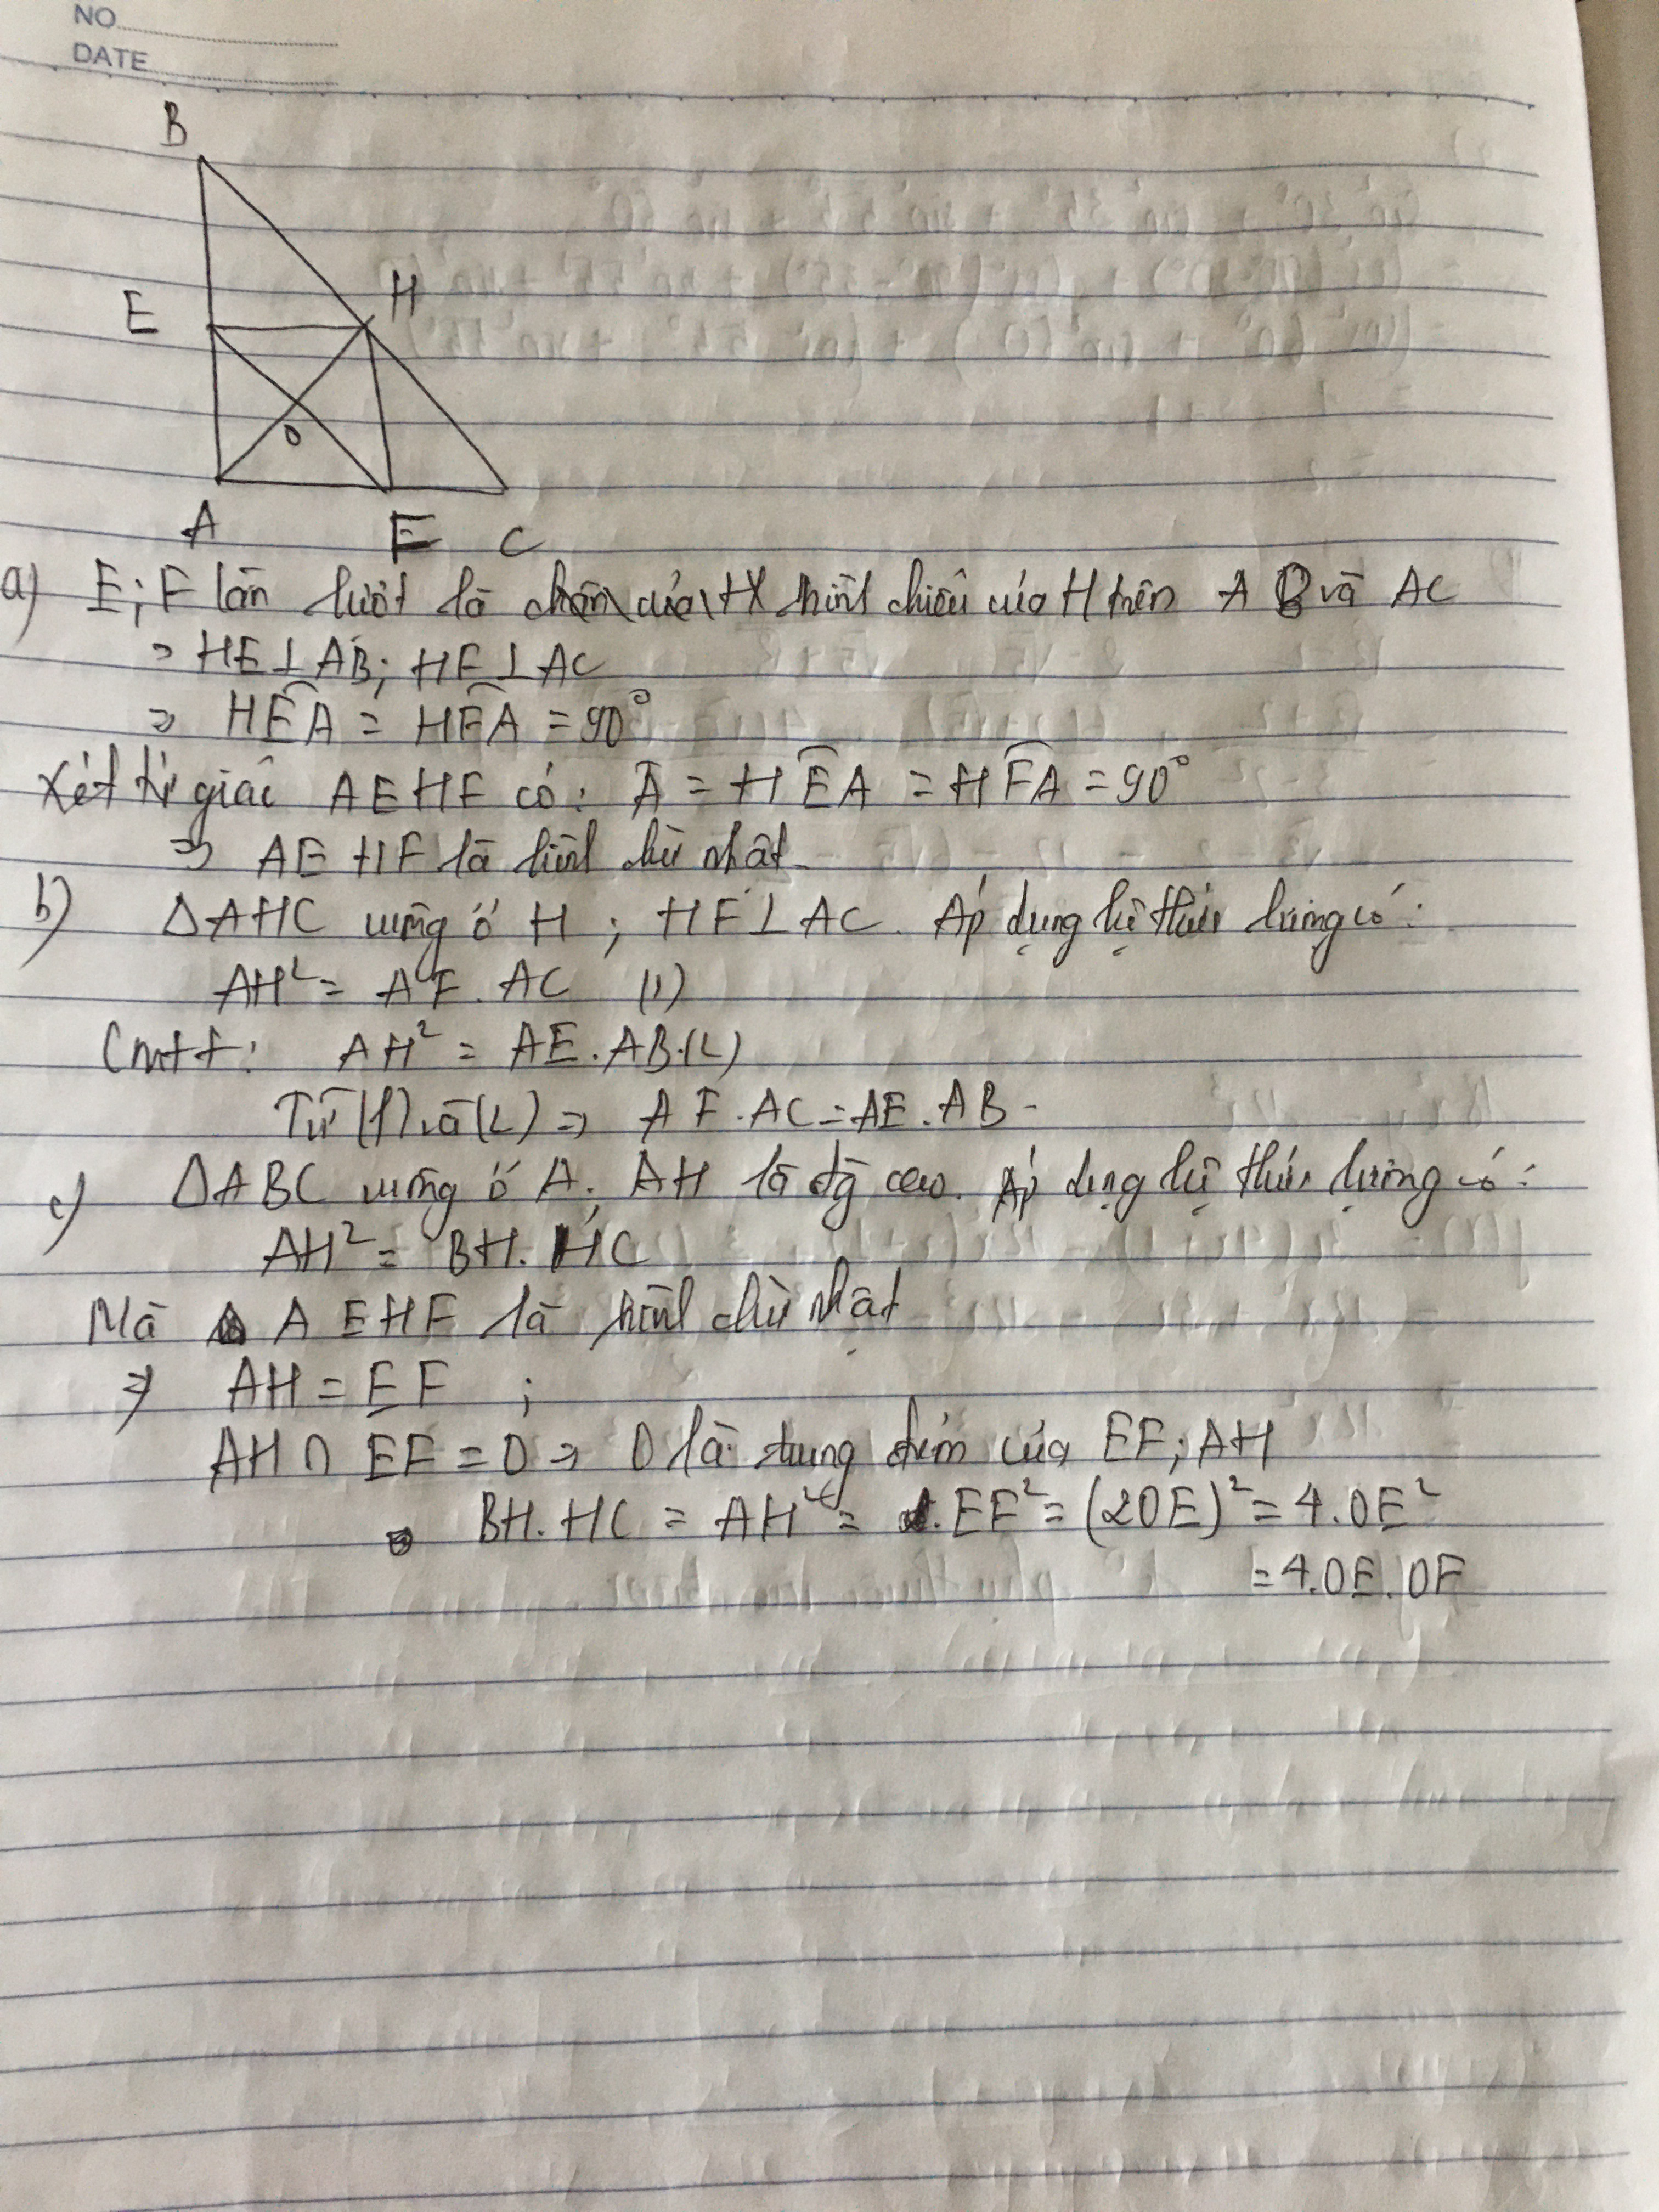 NO
DATE
B
E H
O
A F C
a) E; F lần lượt là chân của hình chiếu của H trên AB và AC
⇒ HE⊥AB; HF⊥AC
⇒ HEA = HFA = 90°
Xét tứ giác AEHF có: A = HEA = HFA = 90°
⇒ AEHF là hình chữ nhật
b) ΔAHC vuông ở H; HF⊥AC. Áp dụng hệ thức lượng có:
AH² = AF.AC (1)
Cmtt: AH² = AE.AB.(2)
Từ (1) và (2) ⇒ AF.AC = AE.AB
c) ΔABC vuông ở A. AH là đg cao. Áp dụng hệ thức lượng có:
AH² = BH.HC
Mà AEHF là hình chữ nhật
⇒ AH = EF ;
AH ∩ EF = O ⇒ O là trung điểm của EF; AH
BH.HC = AH² = EF² = (2OE)² = 4.OE²
= 4.OE.OF